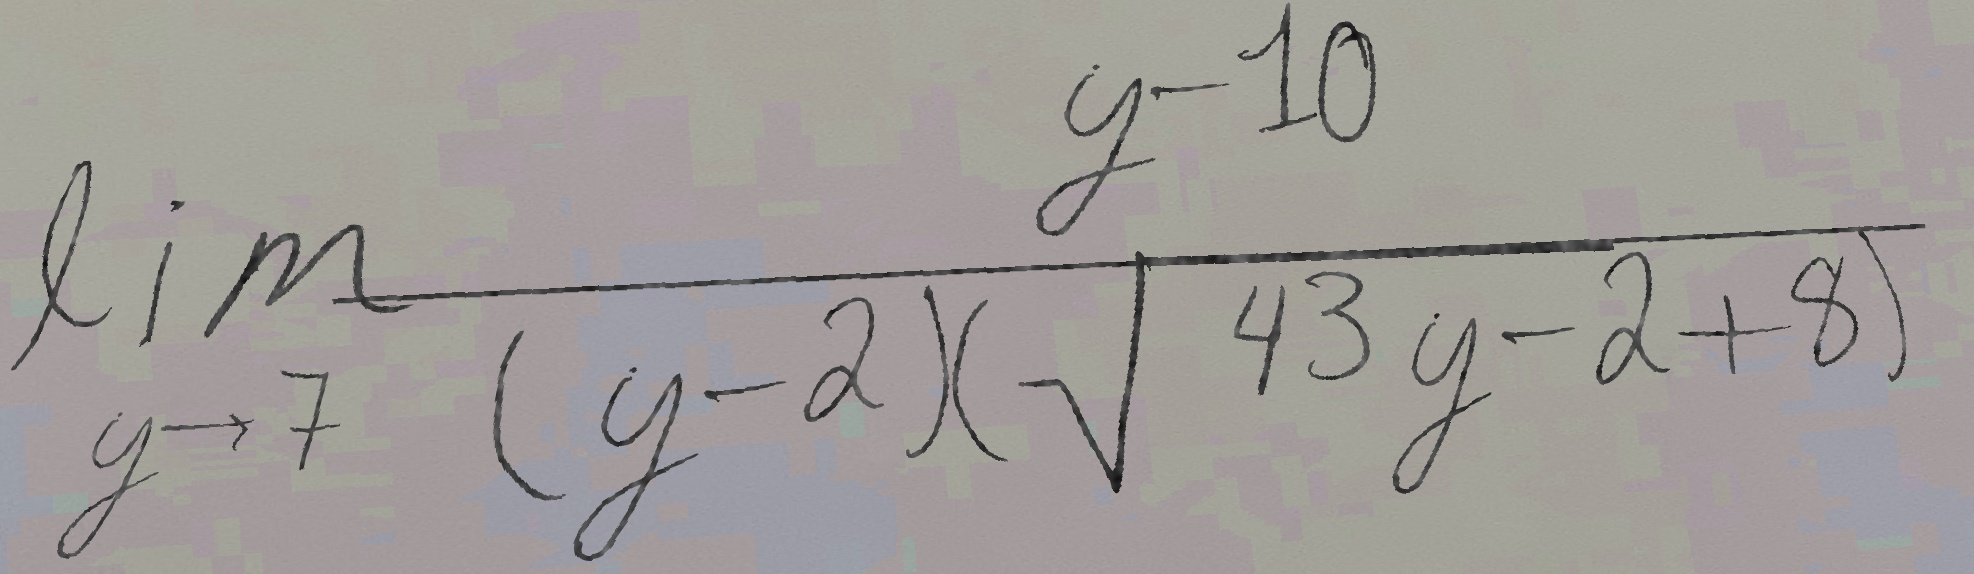 \lim_{y \to 7} \frac{y-10}{(y-2)(\sqrt{43y-2}+8)}